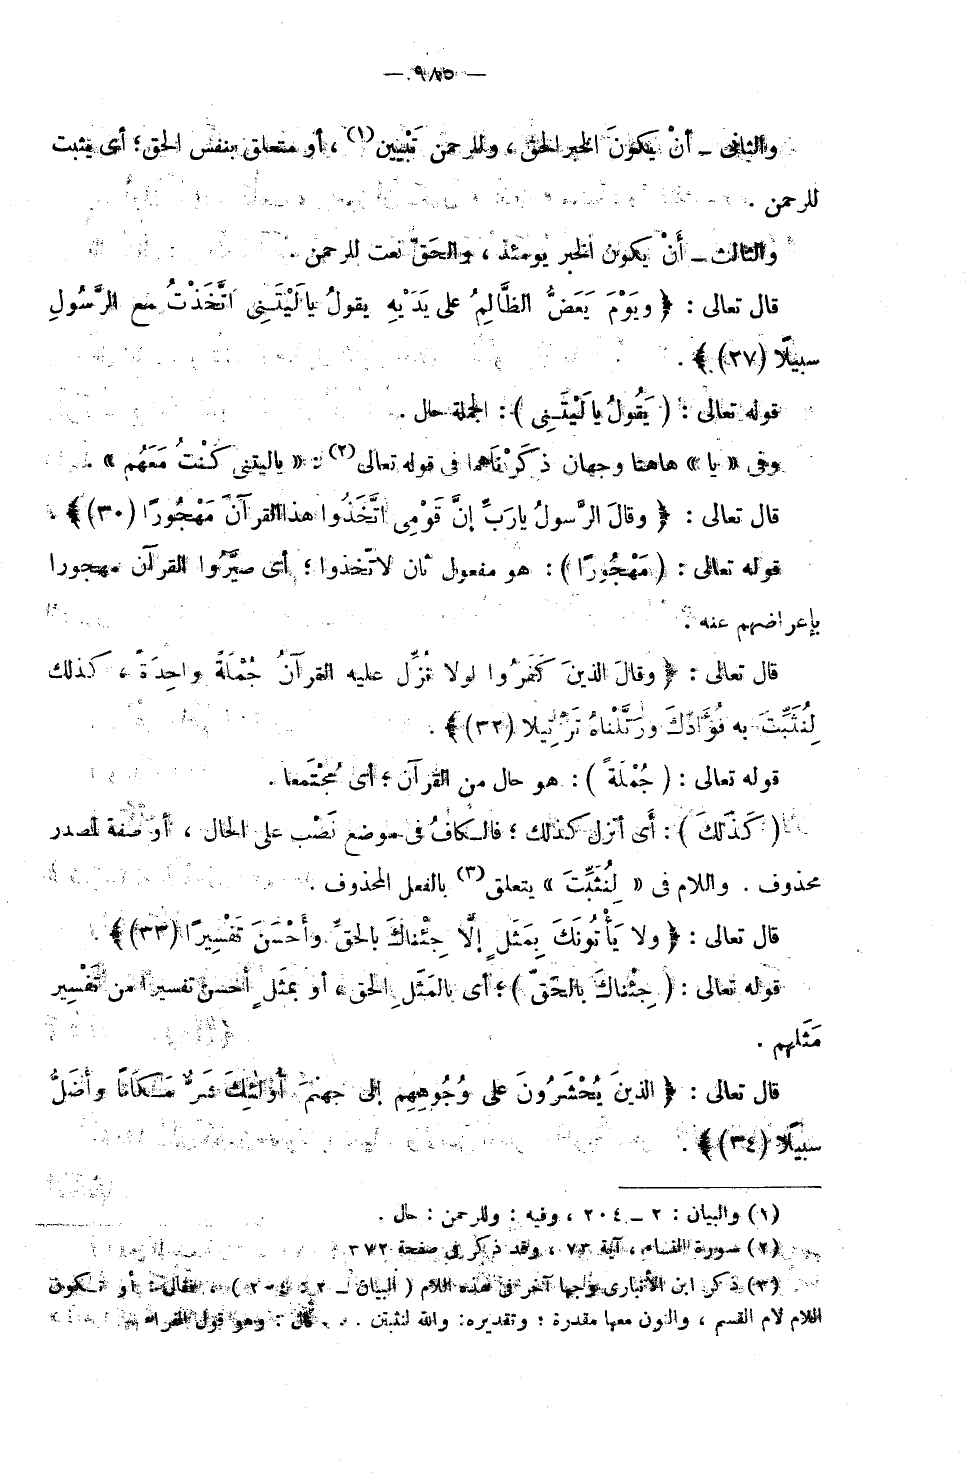 — ٩٨٥ —
والثانى – أنْ يكونَ الخبر الحق ، وللرحمن تَبْيين(١) ، أو متعلق بنفس الحق؛ أى يثبت
للرحمن .
والثالث – أَنْ يكون الخبر يومئذ ، والحَقّ نعت للرحمن .
قال تعالى : ﴿ ويَوْمَ يَعَضُّ الظَّالِمُ على يَدَيْهِ يقولُ يالَيْتَنِى اتَّخَذْتُ مع الرَّسُولِ
سبيلًا (٢٧) ﴾ .
قوله تعالى : ( يَقُولُ يالَيْتَنِى ) : الجملة حال .
وفى « يا » هاهنا وجهان ذكَرْنَاهما فى قوله تعالى(٢) : « ياليتنى كُنْتُ مَعَهُم » .
قال تعالى : ﴿ وقالَ الرَّسولُ يارَبِّ إنَّ قَوْمِى اتَّخَذُوا هذا القرآنَ مَهْجُورًا (٣٠) ﴾ .
قوله تعالى : ( مَهْجُورًا ) : هو مفعول ثان لاتّخذوا ؛ أى صيَّرُوا القرآن مهجورا
بإعراضهم عنه .
قال تعالى : ﴿ وقالَ الذينَ كَفَرُوا لولا نُزِّل عليه القرآنُ جُمْلَةً واحِدَةً ، كذلك
لِنُثَبِّتَ به فُؤَادَكَ ورَتَّلْناهُ تَرْتِيلا (٣٢) ﴾ .
قوله تعالى : ( جُمْلَةً ) : هو حال من القرآن ؛ أى مُجْتَمعا .
( كَذَلكَ ) : أَى أنزل كذلك ؛ فالكافُ فى موضع نَصْب على الحال ، أو صفة لمصدر
محذوف . واللام فى « لِنُثَبِّتَ » يتعلق(٣) بالفعل المحذوف .
قال تعالى : ﴿ ولا يَأْتُونَكَ بِمَثَلٍ إلَّا جِئْناكَ بالحقِّ وأَحْسَنَ تَفْسِيرًا (٣٣) ﴾ .
قوله تعالى : ( جِئْناكَ بالحَقِّ ) ؛ أى بالمَثَلِ الحق ، أو بمَثَلٍ أحسنَ تفسيرًا من تَفْسِير
مَثَلهم .
قال تعالى : ﴿ الذينَ يُحْشَرُونَ على وُجُوهِهِم إلى جهنمَ أولئِكَ شَرٌّ مَكَانًا وأَضَلُّ
سبيلًا (٣٤) ﴾ .
(١) والبيان : ٢ – ٢٠٤ ، وفيه : وللرحمن : حال .
(٢) سورة النساء ، آية ٧٣ ، وقد ذكر فى صفحة ٣٧٢
(٣) ذكر ابن الأنبارى وجها آخر فى هذه اللام ( البيان – ٢ : ٢٠٤ ) ، فقال : أو تكون
اللام لام القسم ، والنون معها مقدرة ؛ وتقديره: والله لنثبتن . . . قال : وهو قول الفراء